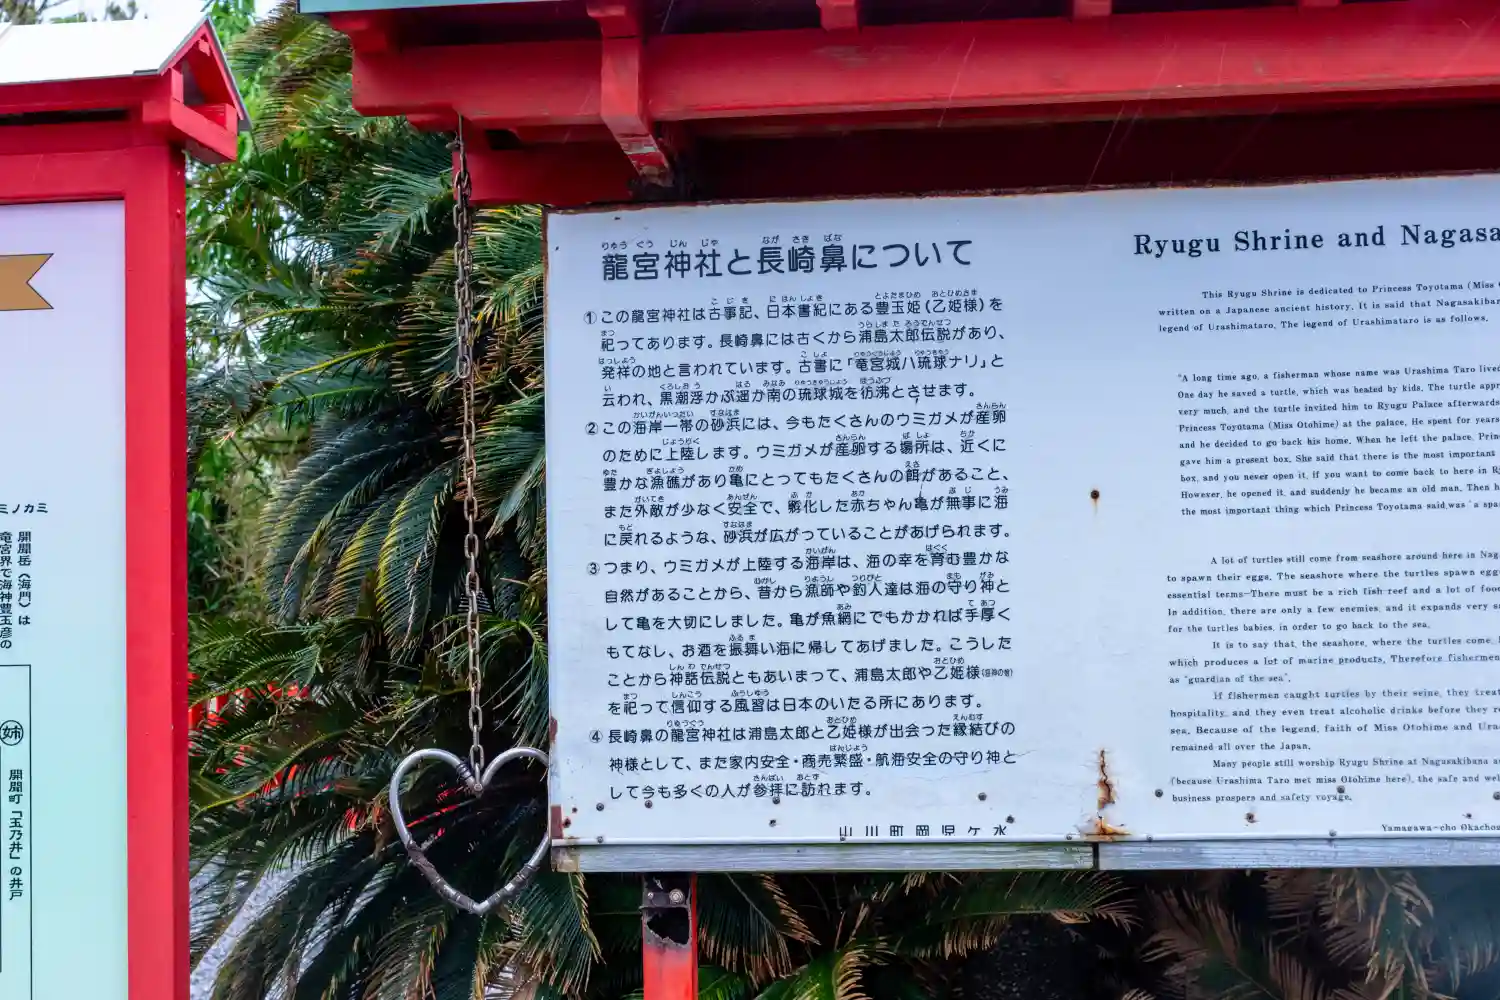 ミノカミ
開聞岳(海門)は
竜宮界で海神豊玉彦の
姉
開聞町「玉乃井」の井戸
龍宮神社と長崎鼻について
①この龍宮神社は古事記、日本書紀にある豊玉姫(乙姫様)を
祀ってあります。長崎鼻には古くから浦島太郎伝説があり、
発祥の地と言われています。古書に「竜宮城ハ琉球ナリ」と
云われ、黒潮浮かぶ遥か南の琉球城を彷沸とさせます。
②この海岸一帯の砂浜には、今もたくさんのウミガメが産卵
のために上陸します。ウミガメが産卵する場所は、近くに
豊かな漁礁があり亀にとってもたくさんの餌があること、
また外敵が少なく安全で、孵化した赤ちゃん亀が無事に海
に戻れるような、砂浜が広がっていることがあげられます。
③つまり、ウミガメが上陸する海岸は、海の幸を育む豊かな
自然があることから、昔から漁師や釣人達は海の守り神と
して亀を大切にしました。亀が魚網にでもかかれば手厚く
もてなし、お酒を振舞い海に帰してあげました。こうした
ことから神話伝説ともあいまって、浦島太郎や乙姫様
を祀って信仰する風習は日本のいたる所にあります。
④長崎鼻の龍宮神社は浦島太郎と乙姫様が出会った縁結びの
神様として、また家内安全・商売繁盛・航海安全の守り神と
して今も多くの人が参拝に訪れます。
山川町岡児ケ水
Ryugu Shrine and Nagasa
This Ryugu Shrine is dedicated to Princess Toyotama (Miss
written on a Japanese ancient history. It is said that Nagasakiba
legend of Urashimataro. The legend of Urashimataro is as follows.
"A long time ago, a fisherman whose name was Urashima Taro lived
One day he saved a turtle, which was beated by kids. The turtle appr
very much, and the turtle invited him to Ryugu Palace afterwards
Princess Toyotama (Miss Otohime) at the palace. He spent for years
and he decided to go back his home. When he left the palace, Prin
gave him a present box. She said that there is the most important
box, and you never open it, if you want to come back to here in R
However, he opened it, and suddenly he became an old man. Then h
the most important thing which Princess Toyotama said was "a spa
A lot of turtles still come from seashore around here in Nag
to spawn their eggs. The seashore where the turtles spawn egg
essential terms-There must be a rich fish reef and a lot of foo
In addition, there are only a few enemies, and it expands very s
for the turtles babies, in order to go back to the sea.
It is to say that, the seashore, where the turtles come,
which produces a lot of marine products. Therefore fishermen
as "guardian of the sea".
If fishermen caught turtles by their seine, they treat
hospitality, and they even treat alcoholic drinks before they r
sea. Because of the legend, faith of Miss Otohime and Ura
remained all over the Japan.
Many people still worship Ryugu Shrine at Nagasakibana a
(because Urashima Taro met miss Otohime here), the safe and wel
business prospers and safety voyage.
Yamagawa-cho Okacho